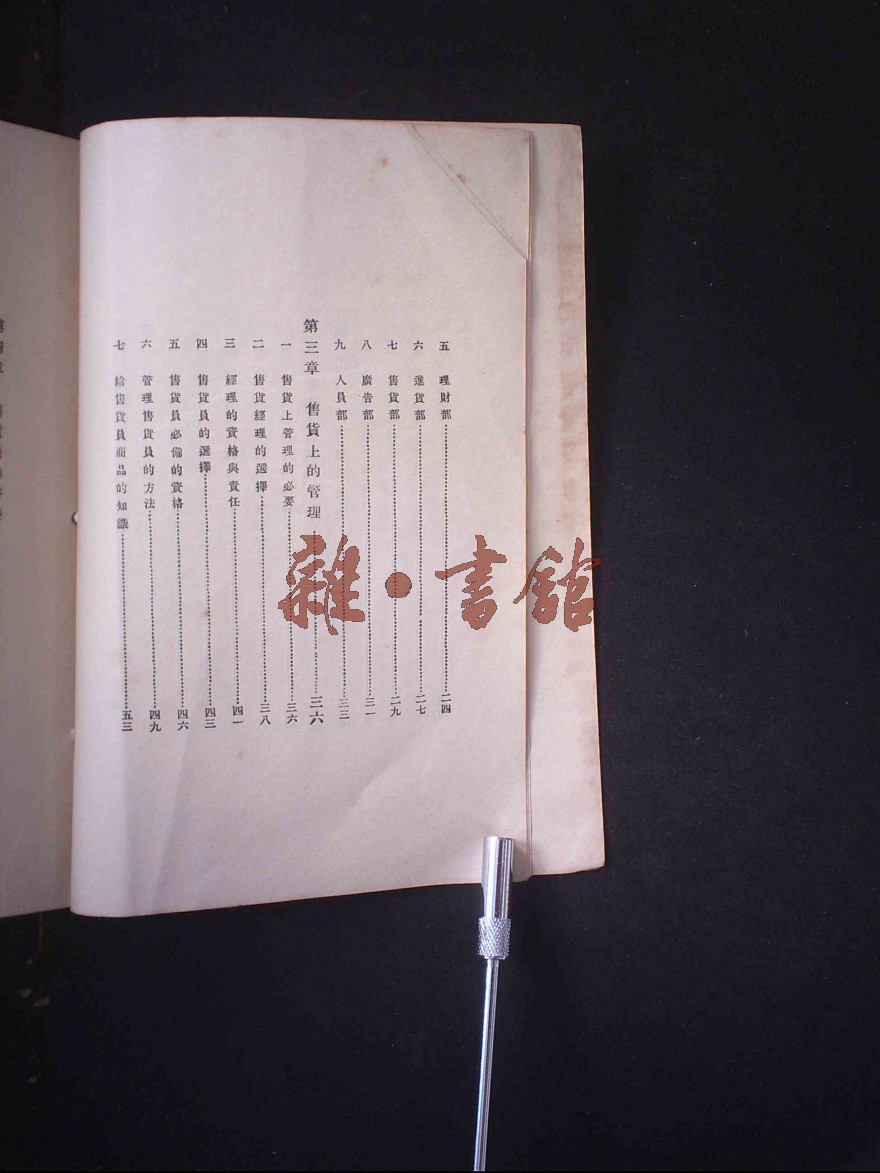 五　理財部……二四
六　進貨部……二七
七　售貨部……二九
八　廣告部……三一
九　人員部……三三
第三章　售貨上的管理……三六
一　售貨上管理的必要……三六
二　售貨經理的選擇……三八
三　經理的資格與責任……四一
四　售貨員的選擇……四三
五　售貨員必備的資格……四六
六　管理售貨員的方法……四九
七　給售貨員商品的知識……五三
雜・書館